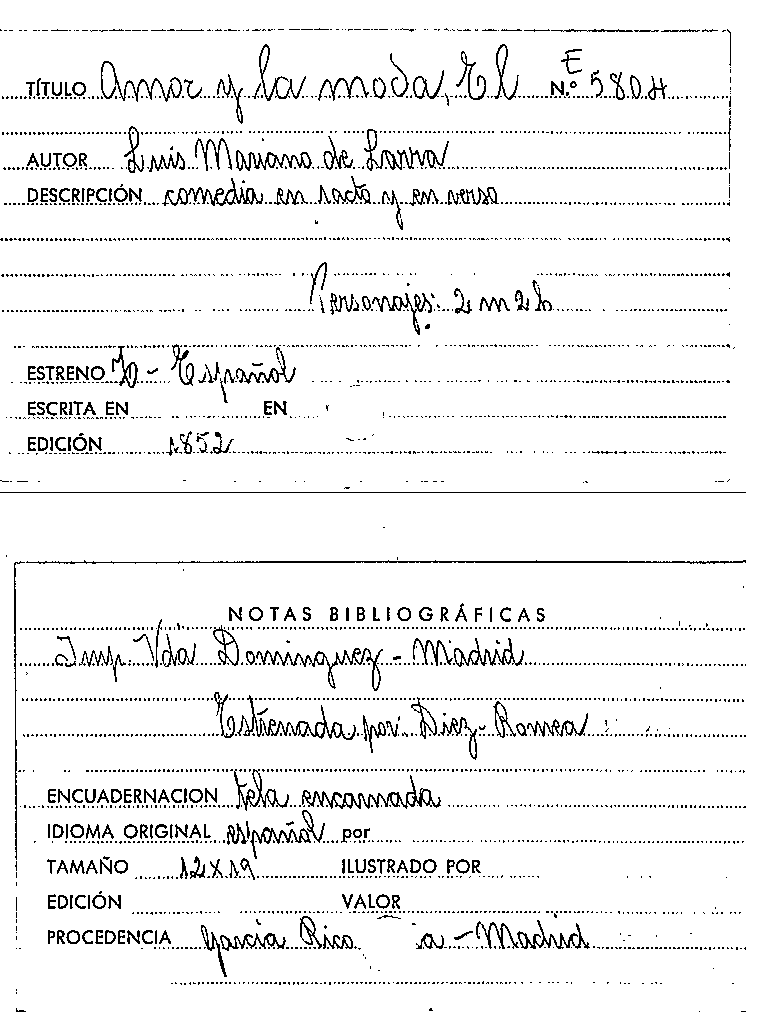 TÍTULO Amor y la moda, El N.º E 5804
AUTOR Luis Mariano de Larra
DESCRIPCIÓN comedia en 1 acto y en verso
Personajes: 2 m 2 h
ESTRENO - Español
ESCRITA EN EN
EDICIÓN 1852
NOTAS BIBLIOGRÁFICAS
Imp. Vda Dominguez - Madrid
Estrenada por: Diez - Romea
ENCUADERNACION tela encarnada
IDIOMA ORIGINAL español por
TAMAÑO 12 x 19 ILUSTRADO POR
EDICIÓN VALOR
PROCEDENCIA García Rico a - Madrid